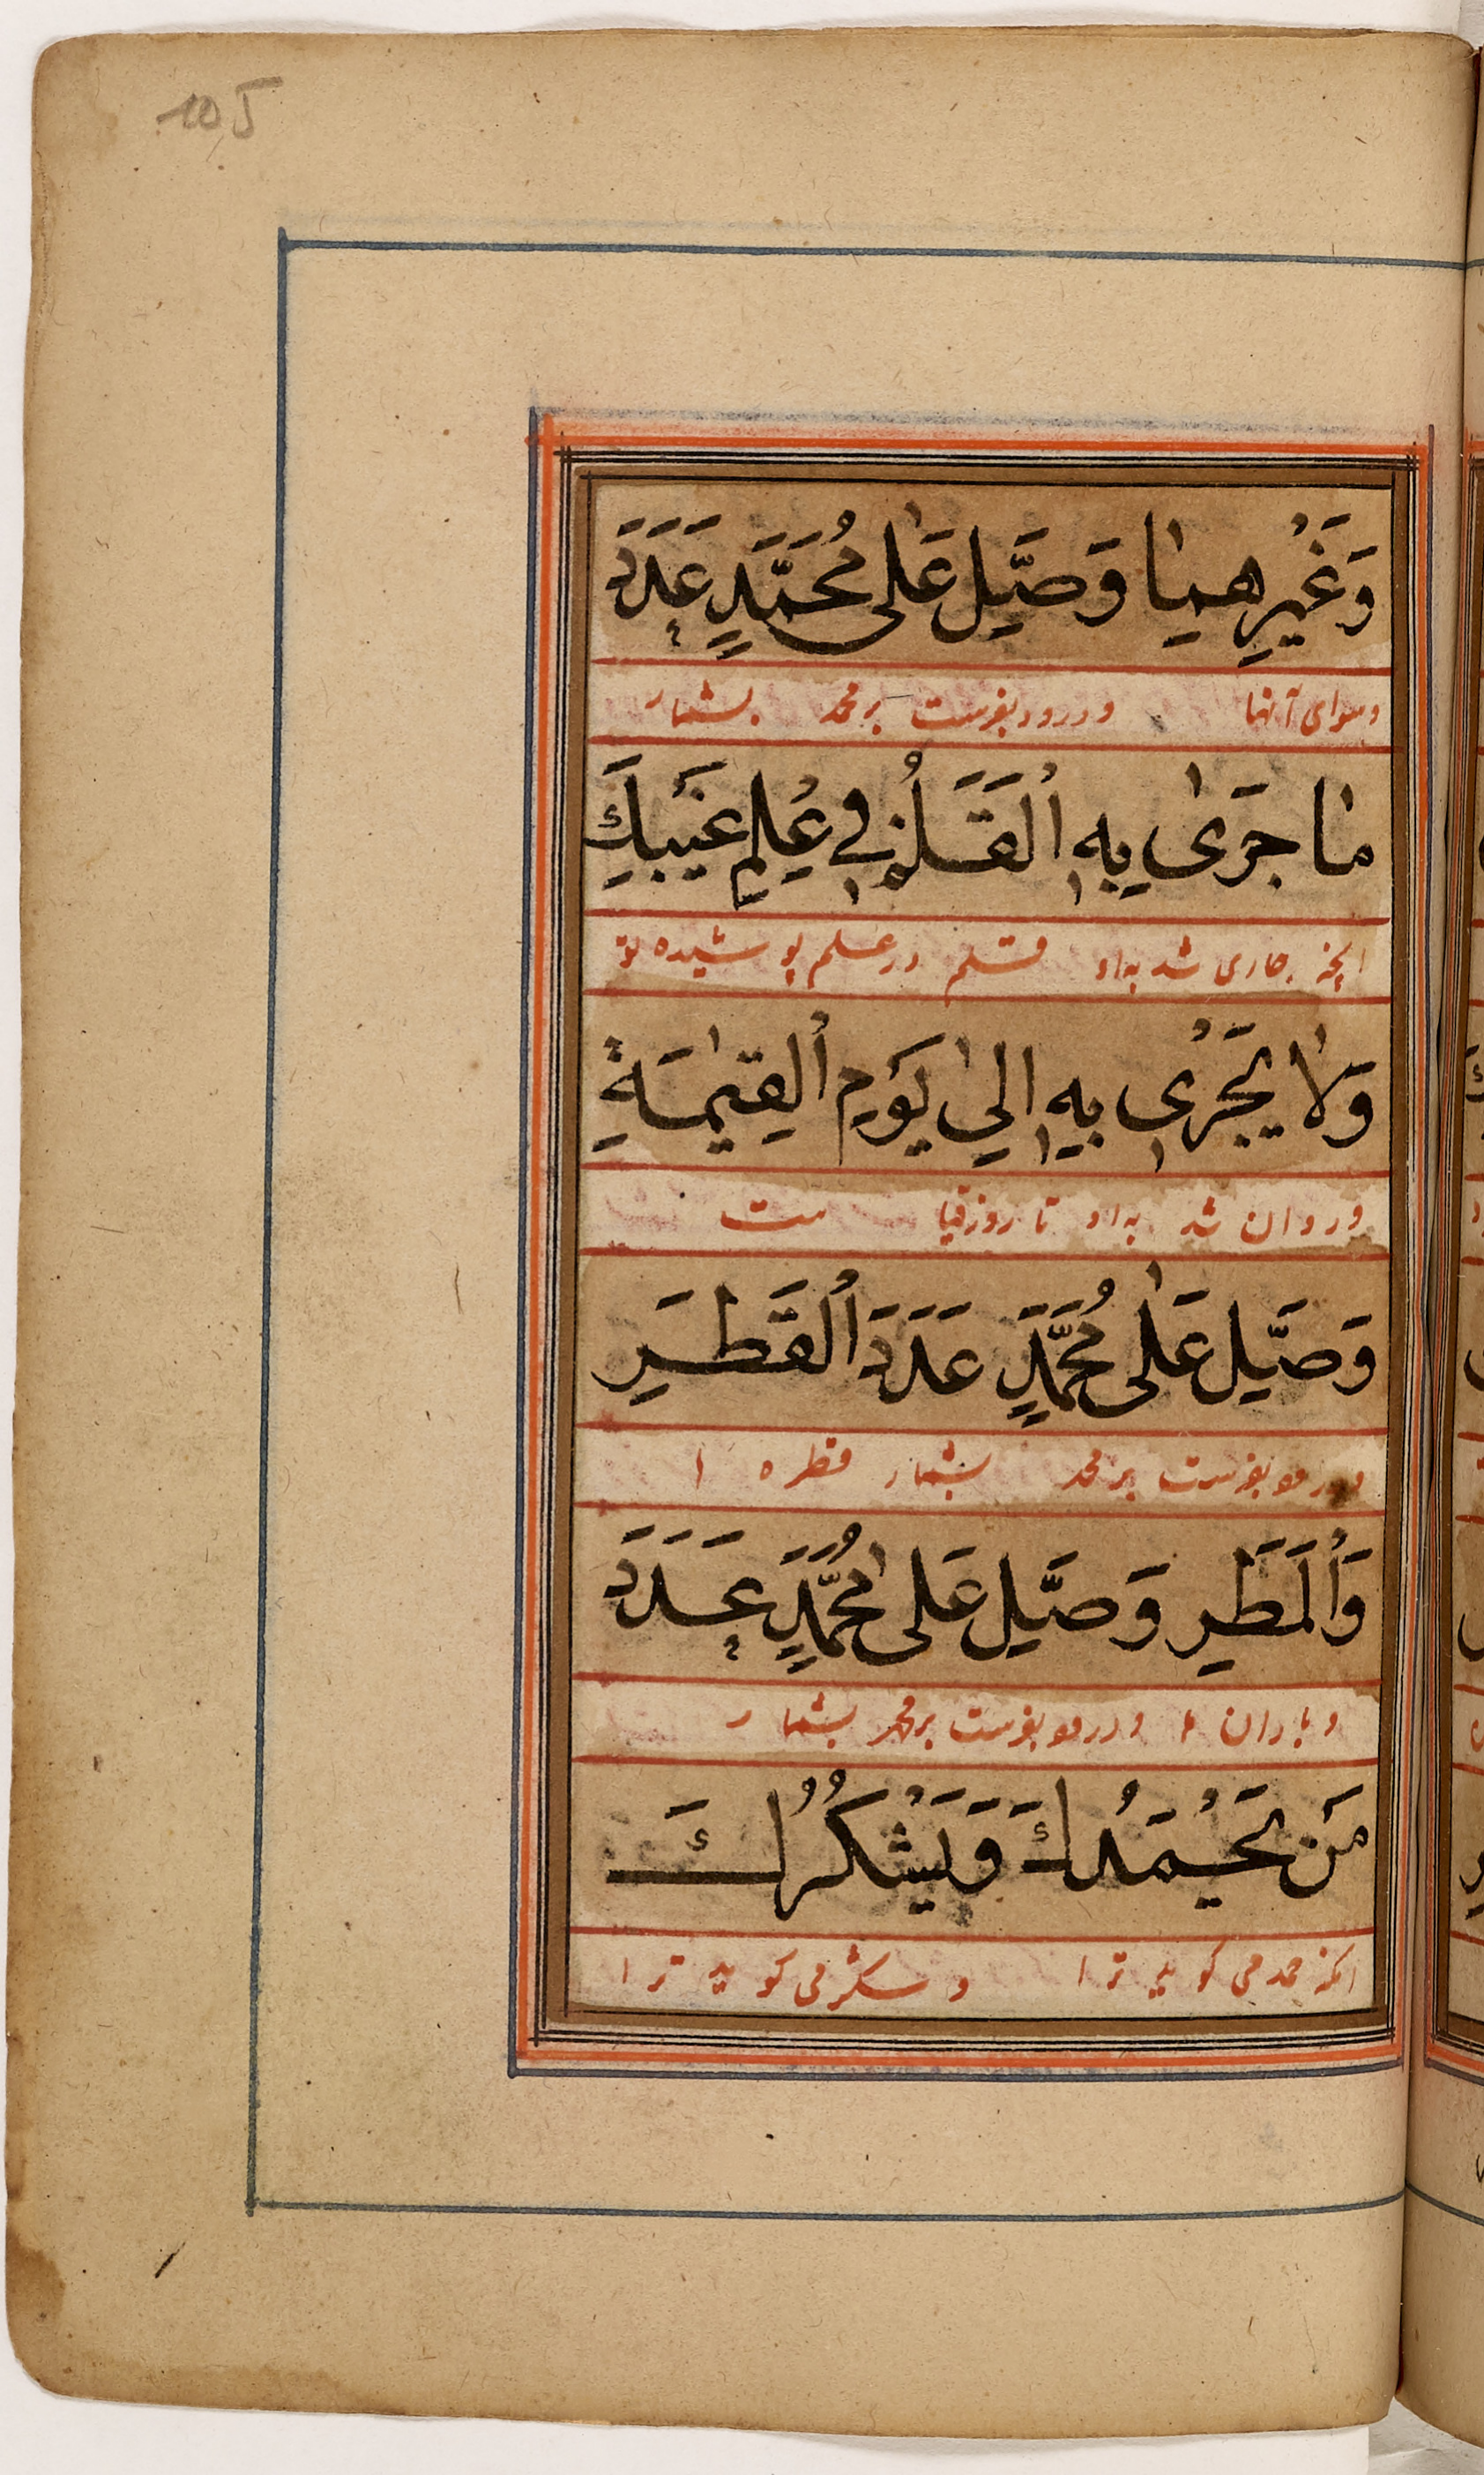 105
وَغَيْرِهِمَا وَصَلِّ عَلَى مُحَمَّدٍ عَدَدَ
وسوای آنها ودرود بفرست بر محمد بشمار
مَا جَرَى بِهِ الْقَلَمُ فِي عِلْمِ غَيْبِكَ
آنچه جاری شد به او قلم در علم پوشیده تو
وَلَا يَجْرِي بِهِ إِلَى يَوْمِ الْقِيٰمَةِ
وروان شد به او تا روز قیامت
وَصَلِّ عَلَى مُحَمَّدٍ عَدَدَ الْقَطْرِ
ودرود بفرست بر محمد بشمار قطره ا
وَالْمَطَرِ وَصَلِّ عَلَى مُحَمَّدٍ عَدَدَ
وباران ودرود بفرست بر محمد بشمار
مَنْ يَحْمَدُكَ وَيَشْكُرُكَ
آنکه حمد می کوید ترا وشکر می کوید ترا